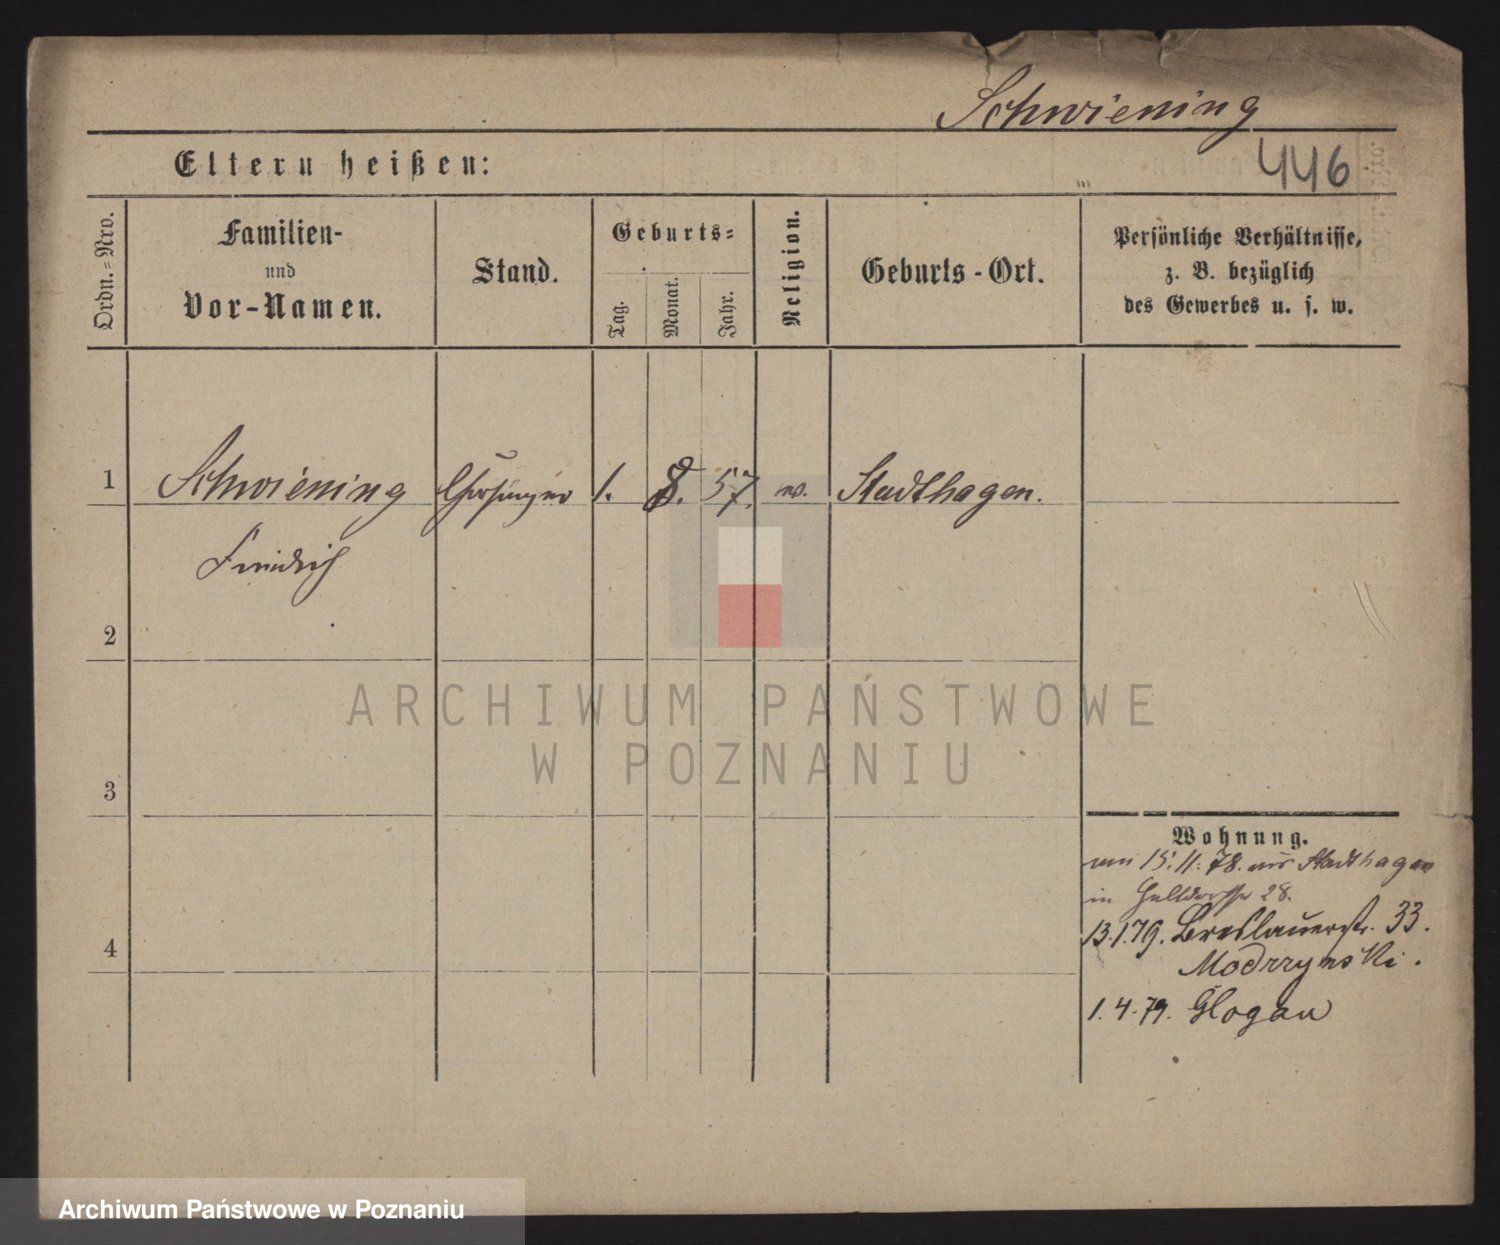 Schwiening
446
Eltern heißen:
Ordn.=Nro.
Familien-
und
Vor-Namen.
Stand.
Geburts=
Tag.
Monat.
Jahr.
Religion.
Geburts-Ort.
Persönliche Verhältnisse,
z. B. bezüglich
des Gewerbes u. s. w.
1 Schwiening 1. 8. 57. ev. Stadthagen.
Friedrich
2
ARCHIWUM PAŃSTWOWE
W POZNANIU
3
Wohnung.
15.11.78. aus Stadthagen
in 28.
13.1.79. Breslauerstr. 33.
4
Modrzynski.
1.4.79. Glogau
Archiwum Państwowe w Poznaniu